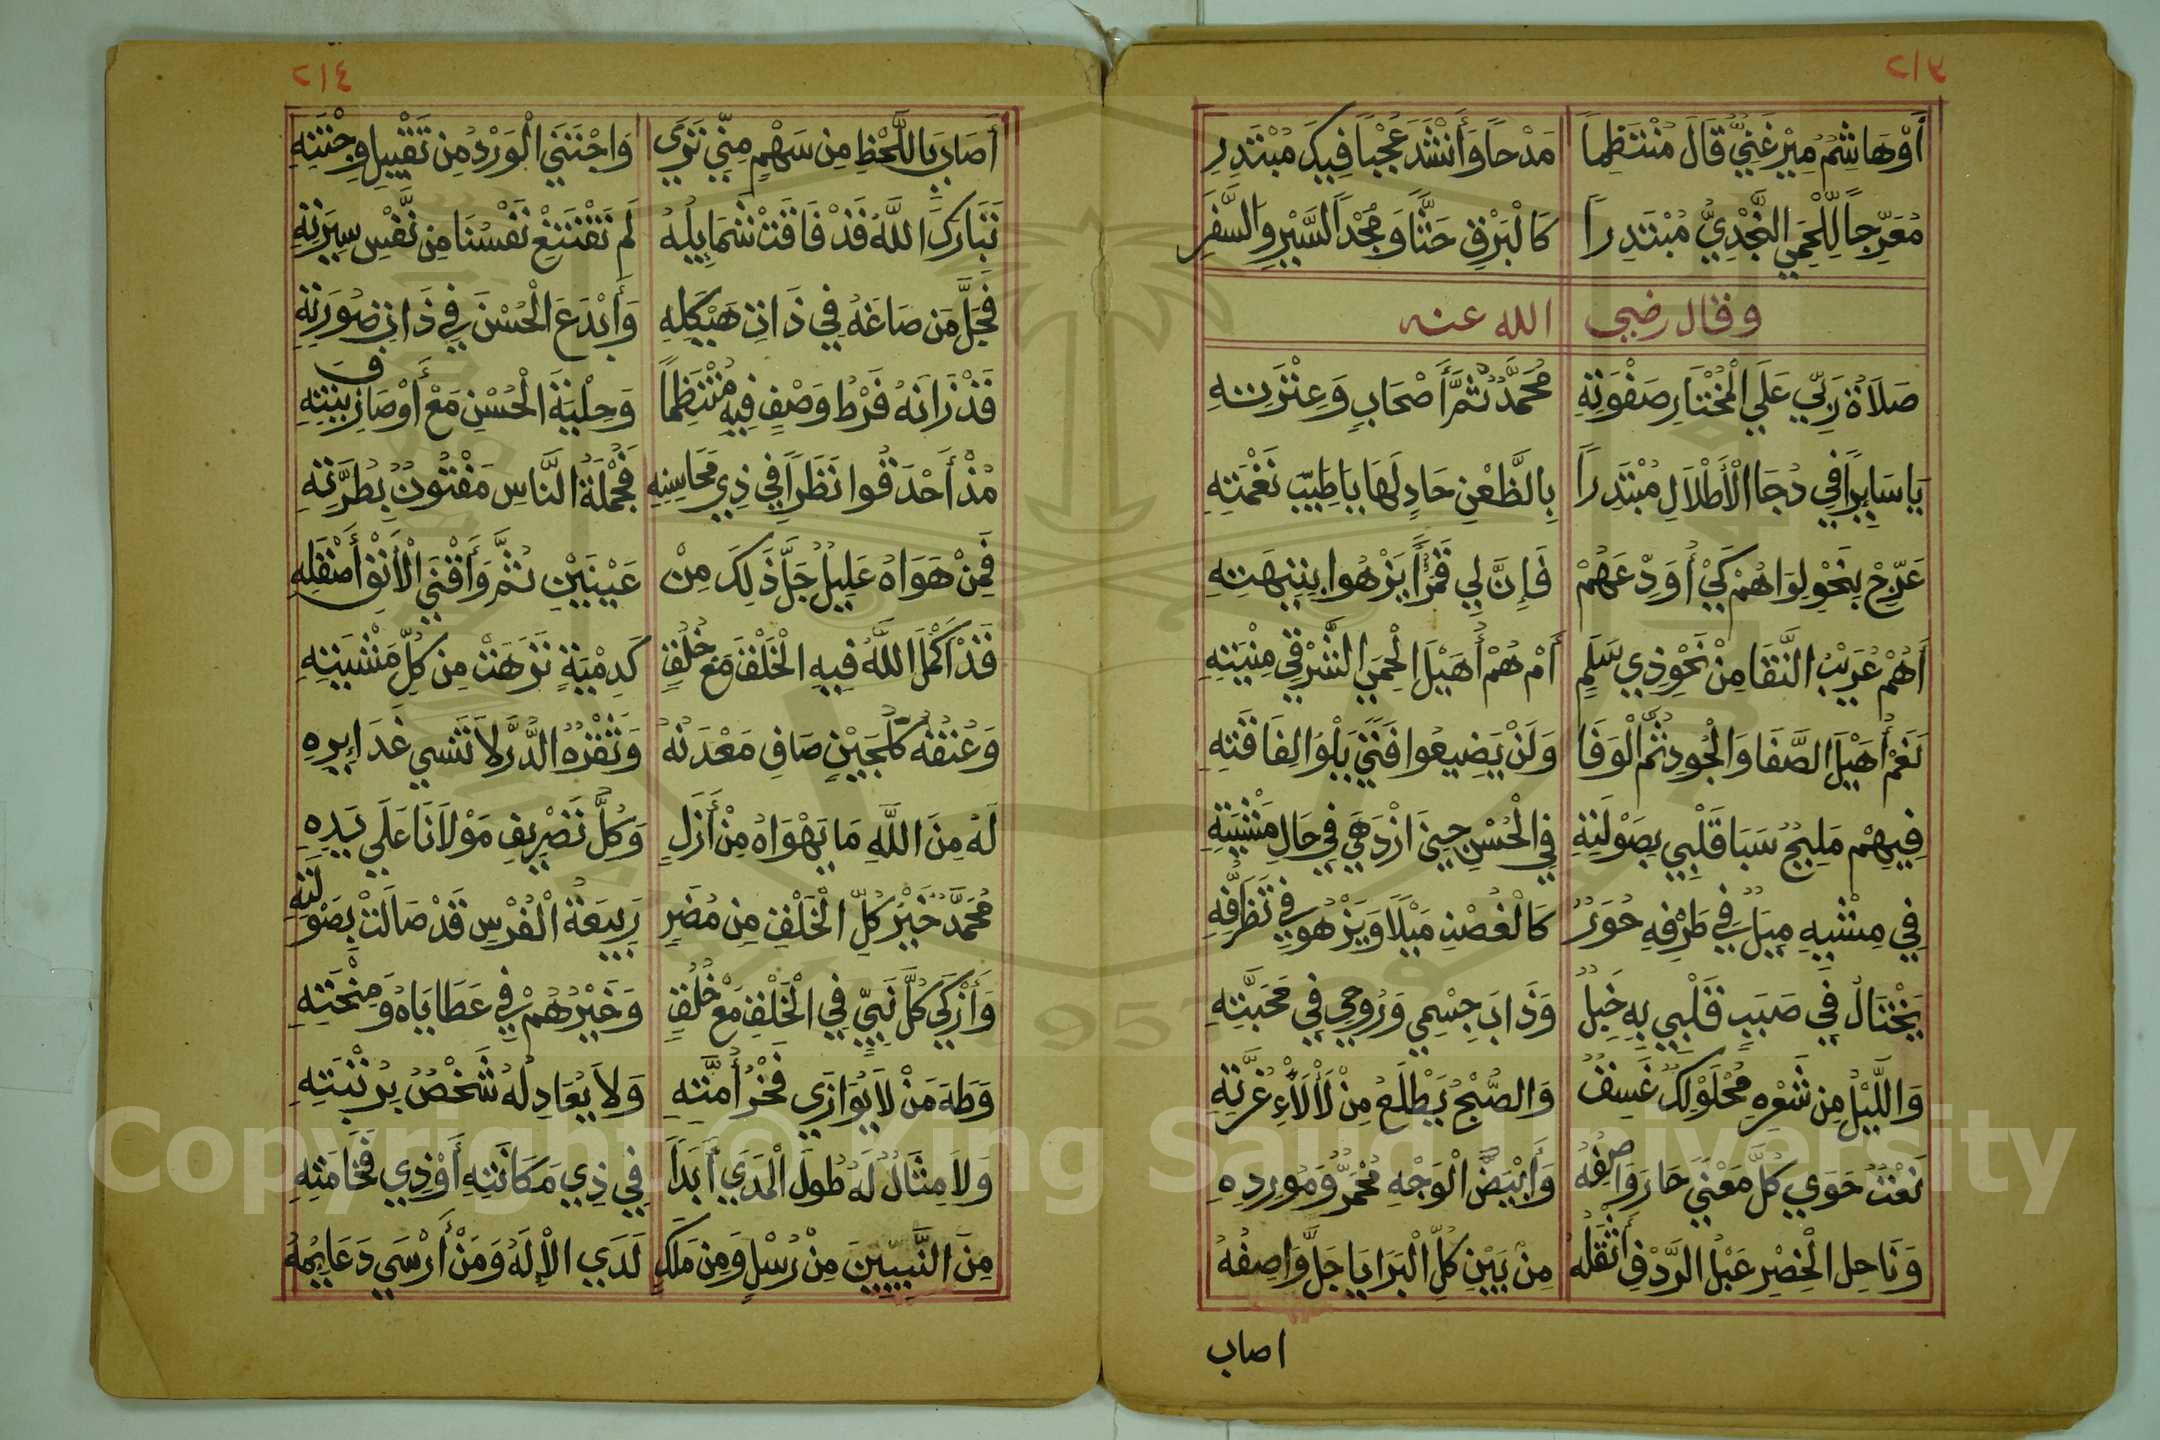 ٢١٣
أَوْ هَاشِمُ مِيْرْغَنِيُّ قَالَ مُنْتَظِمًا مَدْحاً وَأَنْشَدَ عُجْباً فِيكَ مُبْتَدِرِ
مُعَرِّجاً لِلْحِمَي النَّجْدِيِّ مُبْتَدِراً كَالْبَرْقِ حَثًّا وَمُجْدَ السَّيْرِ وَالسَّفَرِ
وقال رضي الله عنه
صَلاَةُ رَبِّي عَلَي الْمُخْتَارِ صَفْوَتِهِ مُحَمَّدٌ ثُمَّ أَصْحَابٍ وَعِتْرَتِهِ
يَا سَايِراً فِي دُجَا الْأَطْلاَلِ مُبْتَدِراً بِالظَّعْنِ حَادٍ لَهَا يَا طِيبَ نَغْمَتِهِ
عَرِّجْ بِنَحْوِ لِوَاهُمْ كَيْ أُوَدِّعَهُمْ فَإِنَّ لِي قَمَراً يَزْهُوا بِتِيهَتِهِ
أَهُمْ عُرَيْبُ النَّقَا مِنْ نَحْوِ ذِي سَلَمٍ أَمْ هُمْ أُهَيْلَ الْحِمَي الشَّرْقِي مِنْيَتِهِ
نَعَمْ أُهَيْلَ الصَّفَا وَالْجُودِ ثُمَّ الْوَفَا وَلَنْ يَضِيعُوا فَتَيً يَلْوُا لِفَاقَتِهِ
فِيهِمْ مَلِيحٌ سَبَا قَلْبِي بِصَوْلَتِهِ فِي الْحُسْنِ حِينَ ازْدَهَي فِي حَالِ مَشْيَتِهِ
فِي مِشْيِهِ مَيَلٌ فِي طَرْفِهِ حُوَرٌ كَالْغُصْنِ مَيْلاً وَيَزْهُو فِي تَظَرُّفِهِ
يَخْتَالُ فِي صَبَبٍ قَلْبِي بِهِ خَبِلٌ وَذَابَ جِسْمِي وَرُوحِي فِي مَحَبَّتِهِ
وَاللَّيْلُ مِن شَعْرِهِ مُحْلَوْلِكٌ غَسِقٌ وَالصُّبْحُ يَطْلَعُ مِنْ لَأْلَاءِ غُرَّتِهِ
نَعْتٌ حَوَي كُلَّ مَعْنَي حَارَ وَاصِفُهُ وَأَبْيَضُّ الْوَجْهِ مُحْمَرٌّ وَمُورِدِهِ
وَنَاحِلِ الْخِصْرِ عَبْلُ الرِّدْفِ أَثْقَلُهُ مِنْ بَيْنِ كُلِّ الْبَرَايَا جَلَّ وَاصِفُهُ
اصاب
٢١٤
أَصَابَ بِاللَّحْظِ مِن سَهْمٍ مِتِّي تَرَي وَاجْتَنَي الْوَرْدُ مِن تَقْبِيلِ وِجْنَتِهِ
تَبَارَكَ اللَّهُ قَدْ فَاقَتْ شَمَايِلُهُ لَمْ تَقْتَنِعْ نَفْسُنَا مِن نَّفْسِ سِيرَتِهِ
فَجَلَّ مَن صَاغَهُ فِي ذَاتِ هَيْكَلِهِ وَأَبْدَعَ الْحُسْنَ فِي ذَاتِ صُورَتِهِ
قَدْ زَانَهُ فَرْطُ وَصْفٍ فِيهِ مُنْتَظِماً وَحِلْيَةَ الْحُسْنِ مَعْ أَوْصَافِ زِينَتِهِ
مُذْ أَحْدَقُوا نَظَراً فِي ذِي مَحَاسِنِهِ فَجُمْلَةُ النَّاسِ مَفْتُونٌ بِطُرَّتِهِ
فَمِنْ هَوَاهُ عَلِيلٌ جَلَّ ذَلِكَ مِنْ عَيْنَيْنِ ثُمَّ وَأَقْنَي الْأَنْفِ أَصْقَلِهِ
قَدْ أَكْمَلَ اللَّهُ فِيهِ الْخَلْقَ مَعْ خُلُقٍ كَدِمْيَةٍ نَزِهَتْ مِن كُلِّ مَشْيَتِهِ
وَعُنْقُهُ كَلُجَيْنٍ صَافِ مَعْدَنُهُ وَثَغْرُهُ الدُّرُّ لاَ تَنْسِي غَدَايِرِهِ
لَهُ مِنَ اللَّهِ مَا يَهْوَاهُ مِنْ أَزَلٍ وَكُلُّ تَصْرِيفِ مَوْلاَنَا عَلَي يَدِهِ
مُحَمَّدٌ خَيْرُ كُلِّ الْخَلْقِ مِن مُضَرٍ رَبِيعَةُ الْفُرْسِ قَدْ صَالَتْ بِصَوْلَتِهِ
وَأَزْكَي كُلِّ نَبِيٍّ فِي الْخَلْقِ مَعْ خُلُقٍ وَخَيْرُهُمْ فِي عَطَايَاهُ وَمِنْحَتِهِ
وَطَهَ مَنْ لاَ يُوَازَي فَخْرُ أُمَّتِهِ وَلاَ يُعَادِلُهُ شَخْصٌ بِرُتْبَتِهِ
وَلاَ مِثَالٌ لَهُ طُولَ الْمَدَي أَبَداً فِي ذِي مَكَانَتِهِ أَوْ ذِي فَخَامَتِهِ
مِنَ النَّبِيِّينَ مِنْ رُسْلٍ وَمِن مَلَكٍ لَدَي الْإِلَهِ وَمَنْ أَرْسَي دَعَايِمُهُ
Copyright © King Saud University
1957